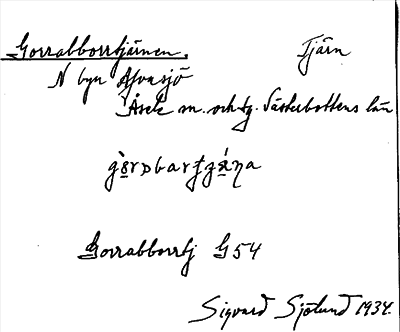 Gorrabborrtjärnen. Tjärn
N byn Avasjö
Åsele sn. och tg. Västerbottens län
Gorrabborrtj G54
Sigvard Sjölund 1934.